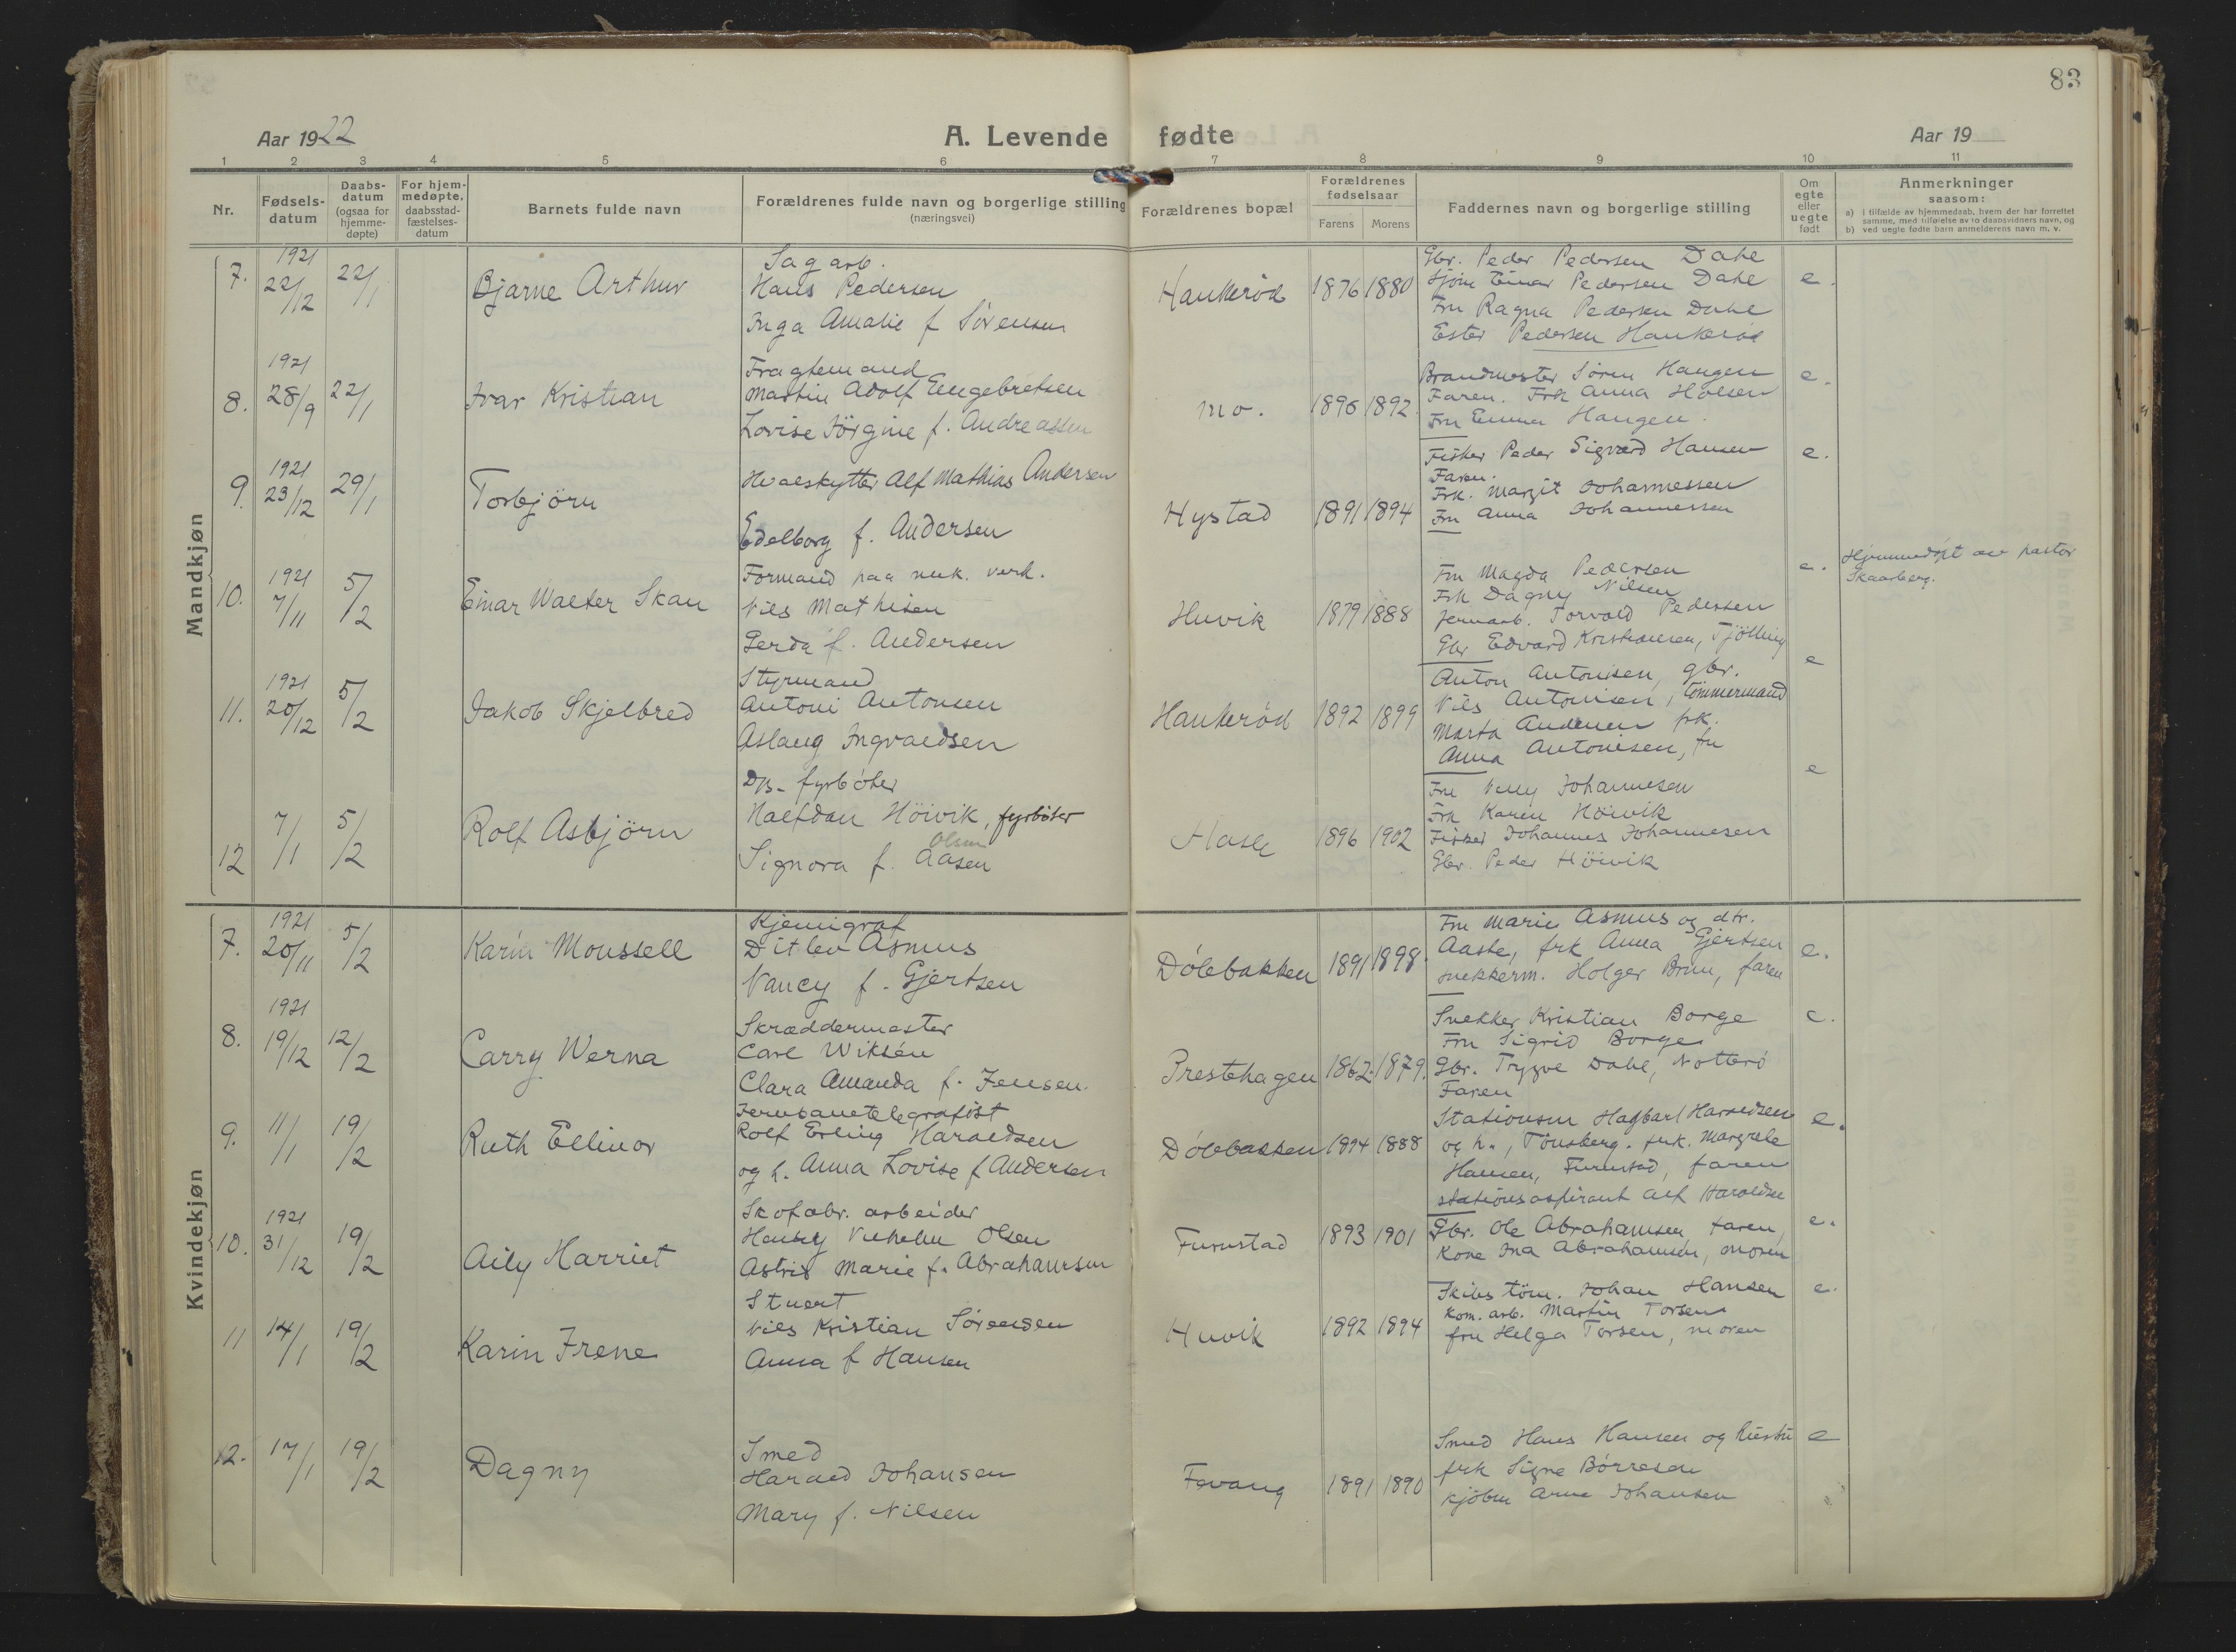 83
Aar 1922
A. Levende fødte
Aar 19
1 2 3 4 5 6 7 8 9 10 11
Nr.
Fødsels-
datum
Daabs-
datum
(ogsaa for
hjemme-
døpte)
For hjem-
medøpte,
daabsstad-
fæstelses-
datum
Barnets fulde navn
Forældrenes fulde navn og borgerlige stilling
(næringsvei)
Forældrenes bopæl
Forældrenes
fødselsaar
Farens Morens
Faddernes navn og borgerlige stilling
Om
egte
eller
uegte
født
Anmerkninger
saasom:
a) I tilfælde av hjemmedaab, hvem der har forrettet
samme, med tilføielse av to daabsvidners navn, og
b) ved uegte fødte barn anmelderens navn m. v.
Mandkjøn
7.
1921
22/12
22/1
Bjarne Arthur
Sagarb.
Hans Pedersen
Inga Amalie f Sörensen
Haukerød
1876 1880
Gbr. Peder Pedersen Dahl
Sjöm Einar Pedersen Dahl
Fru Ragna Pedersen Dahl
Ester Pedersen Haukeröd
e.
8.
1921
28/9
22/1
Ivar Kristian
Fragtemand
Martin Adolf Engebretsen
Lovise Jörgine f. Andreassen
Mo.
1896 1892
Brandmester Sören Haugen
Faren. Frk Anna Holsen
Fru Emma Haugen.
e.
9.
1921
23/12
29/1
Torbjörn
Hvalskytter Alf Mathias Andersen
Edelborg f. Andersen
Hystad
1891 1894
Fisker Peder Sigvard Hansen
Faren.
Frk. Margit Johannessen
Fru Anna Johannessen
e.
10.
1921
7/11
5/2
Einar Walter Skau
Formand paa mek. verk.
Nils Mathisen
Gerda f. Andersen
Huvik
1879 1888
Fru Magda Pedersen
Frk Dagny Nilsen
Jernarb. Torvald Pedersen
Gbr Edvard Kristiansen, Tjölling
e.
Hjemmedöpt av pastor
Skaarberg.
11.
1921
20/12
5/2
Jakob Skjelbred
Styrmand
Antoni Antonsen
Aslaug Ingvaldsen
Haukerød
1892 1899
Anton Antonisen, gbr.
Nils Antonisen, tömmermand
Marta Andersen frk.
Anna Antonisen, fru
e
12
7/1
5/2
Rolf Asbjörn
Ds. fyrböter
Halfdan Höivik, fyrböter
Olsen
Signora f. Aasen
Hasle
1896 1902
Fru Nelly Johannesen
Frk Karen Höivik
Fisker Johannes Johannesen
Gbr. Peder Höivik
e
Kvindekjøn
7.
1921
20/11
5/2
Karin Moussell
Kjemigraf
Ditlev Asmus
Nancy f. Gjertsen
Dölebakken
1891 1898
Fru Marie Asmus og dtr.
Aaste, frk Anna Gjertsen
snekkerm. Holger Brun, faren
e.
8.
1921
19/12
12/2
Carry Werna
Skræddermester
Carl Wiksén
Clara Amanda f. Jensen.
Prestehagen
1862 1879.
Snekker Kristian Borge
Fru Sigrid Borge
Gbr. Trygve Dahl, Nötterö
Faren
e.
9.
11/1
19/2
Ruth Ellinor
Jernbanetelegrafist
Rolf Erling Haraldsen
og h. Anna Lovise f Andersen
Dölebakken
1894 1888
Stationsm Hagbart Haraldsen
og h., Tönsberg. frk. Margrete
Hansen, Furustad, faren
stationsaspirant Alf Haraldsen
e.
10.
1921
31/12
19/2
Aily Harriet
Skofabr. arbeider
Henrry Vilhelm Olsen
Astrid Marie f. Abrahamsen
Furustad
1893 1901
Gbr. Ole Abrahamsen, faren,
Kone Ina Abrahamsen, moren
e.
11
14/1
19/2
Karin Irene
Stuert
Nils Kristian Sörensen
Anna f Hansen
Huvik
1892 1894
Skibs töm. Johan Hansen
Kom. arb. Martin Torsen
fru Helga Torsen, moren
e.
12.
17/1
19/2
Dagny
Smed
Harald Johansen
Mary f. Nilsen
Fevang
1891 1890
Smed Hans Hansen og hustru
frk Signe Börresen
kjöbm Arne Johansen
e